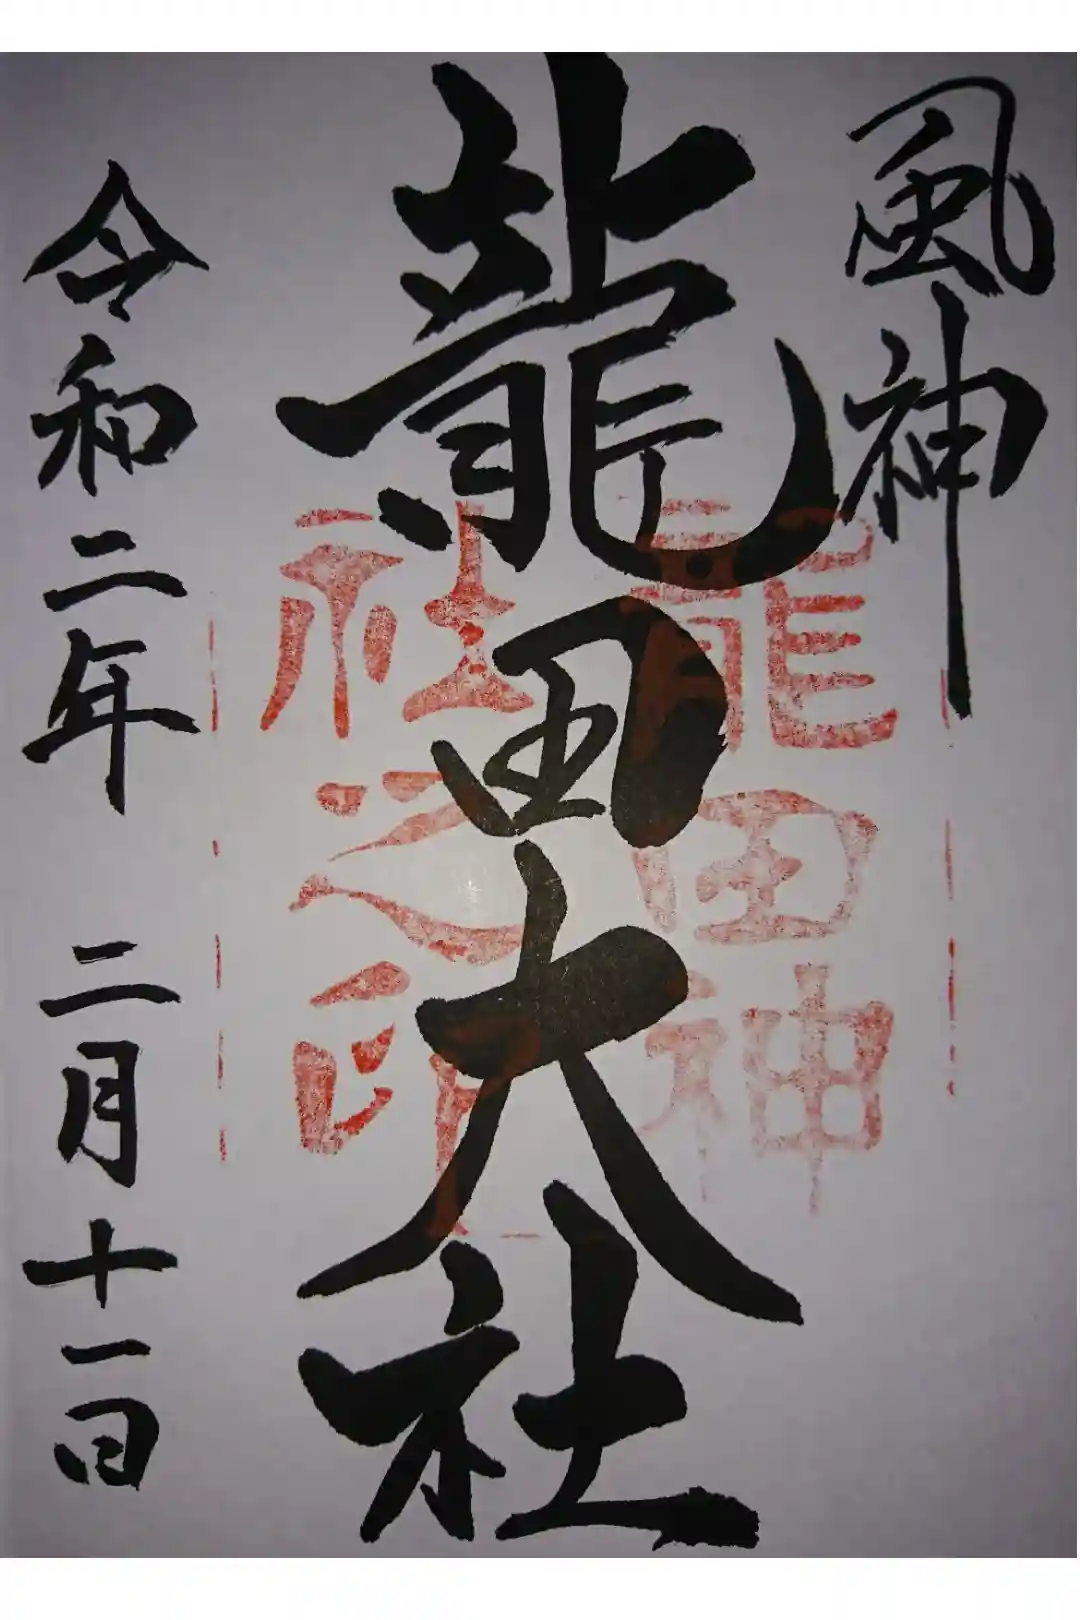 風神
龍田大社
龍田神
社之印
令和二年 二月十一日